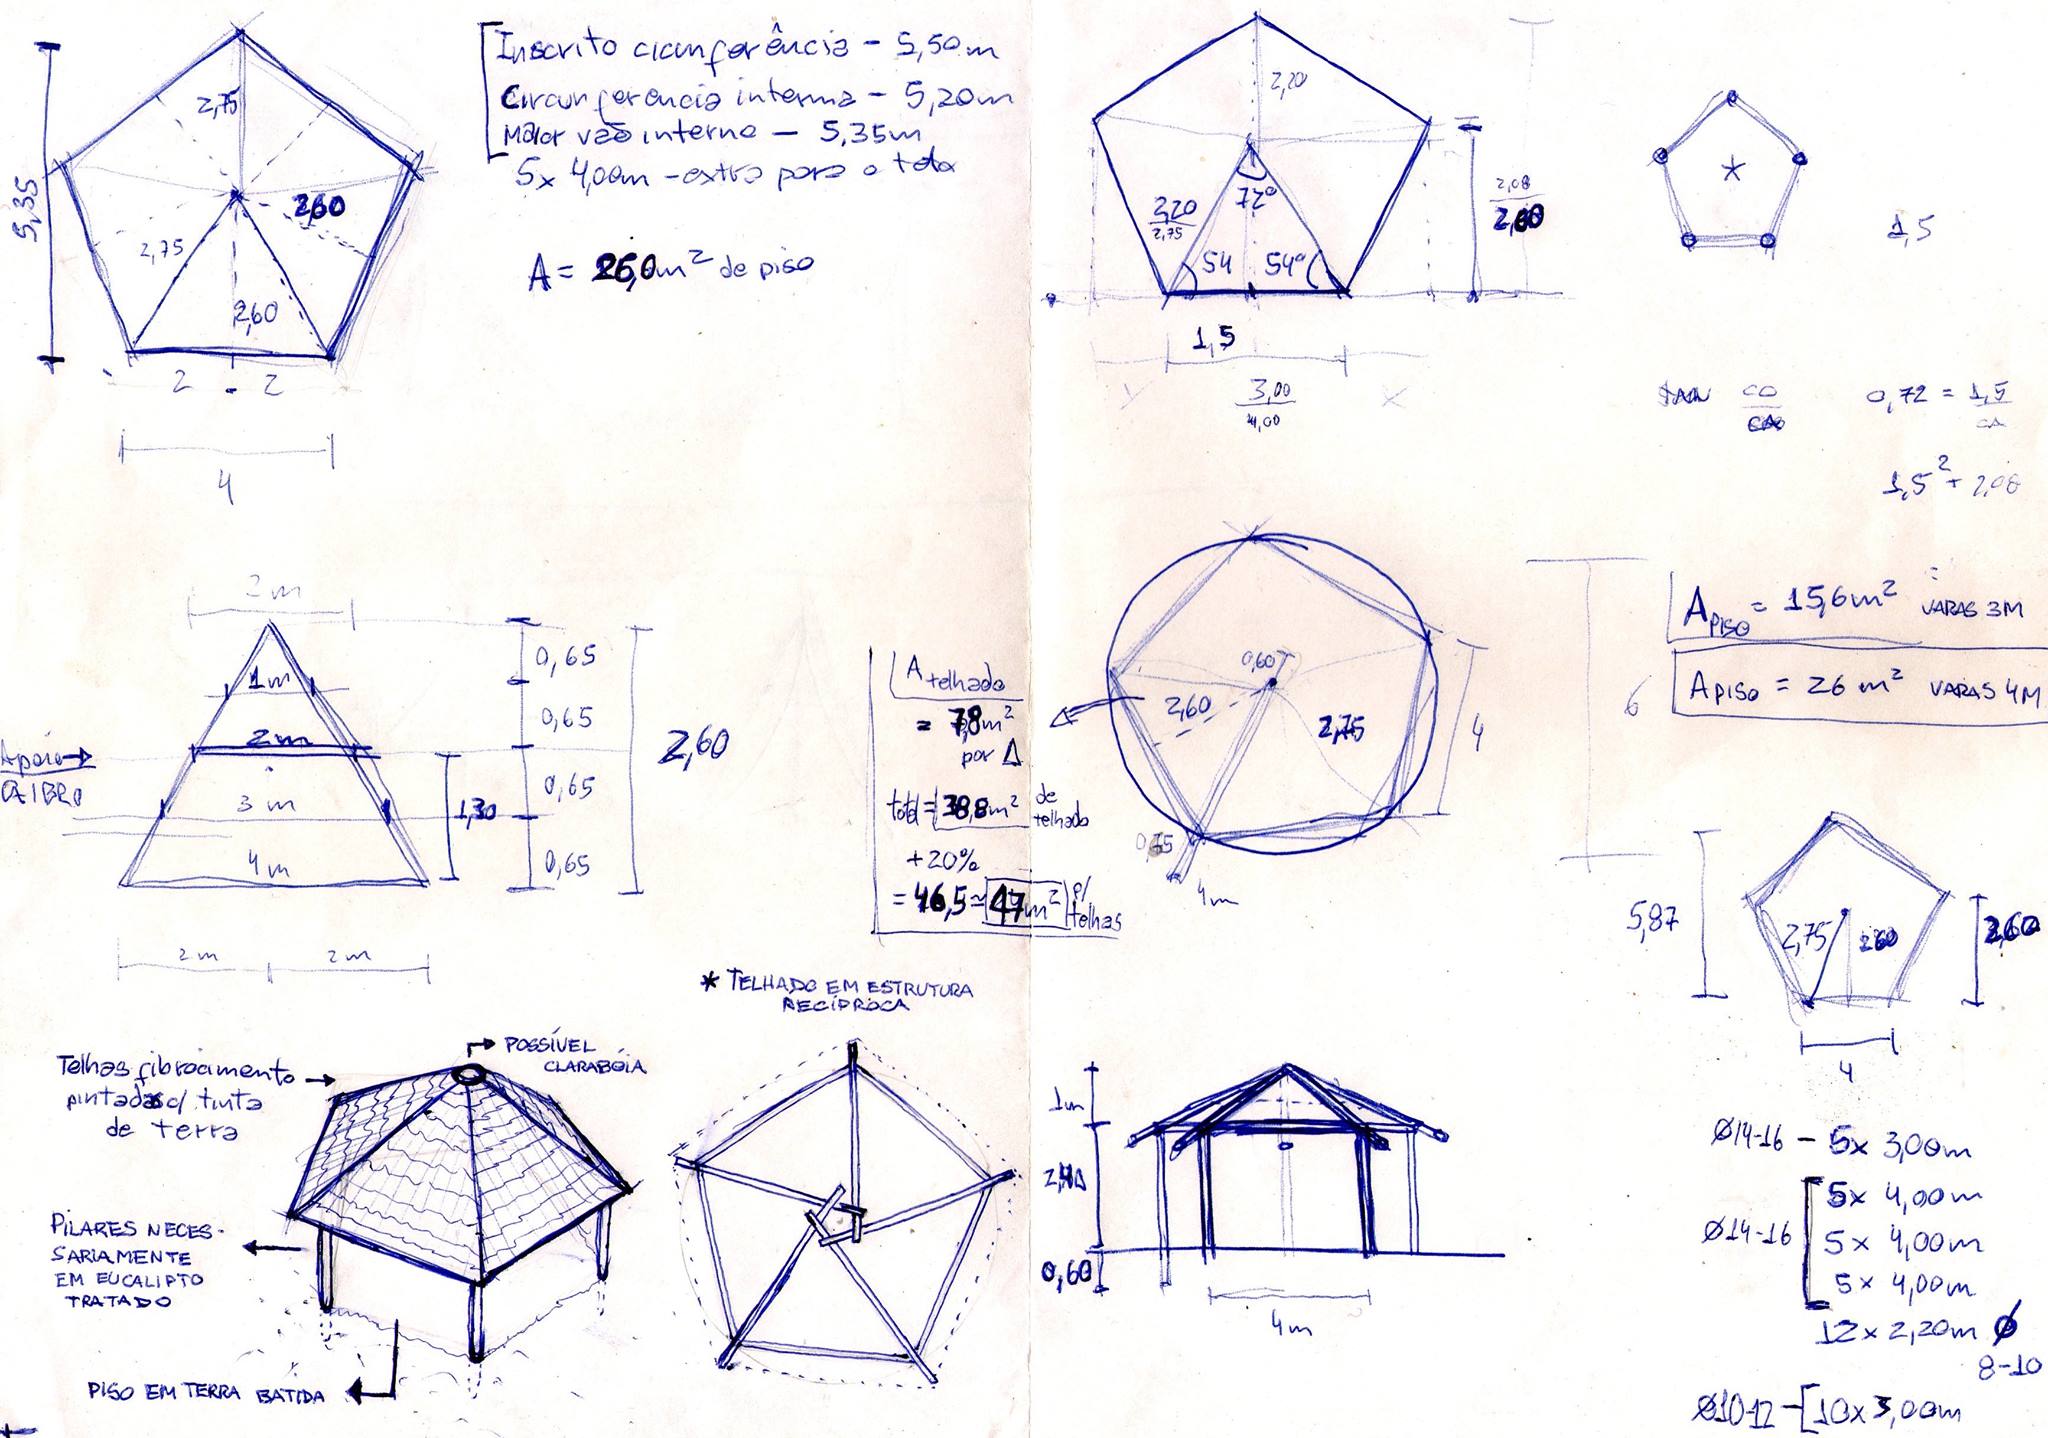 5,35
2,75
2,60
2,75
2,60
2 - 2
4
Inscrito cicunferência - 5,50m
Circunferencia interna - 5,20m
Maior vão interno - 5,35m
5x 4,00m - extra para o teto
A = 26,0m² de piso
2,20
2,20
2,75
72°
54
54°
2,08
2,60
1,5
3,00
4,00
X
1,5
CO
CA
0,72 = 1,5
CA
1,5² + 2,08
2m
1m
2m
3m
4m
Apoio→
CAIBRO
1,30
0,65
0,65
0,65
0,65
2,60
2m
2m
A telhado
= 7,8m²
por Δ
total = 38,8m² de telhado
+20%
= 46,5 ≈ 47m² p/ telhas
0,60
2,60
2,75
4
0,65
4m
6
A PISO = 15,6m² VARAS 3M
A PISO = 26 m² VARAS 4M
5,87
2,75
2,60
2,60
4
* TELHADO EM ESTRUTURA
RECÍPROCA
POSSÍVEL
CLARABÓIA
Telhas fibrocimento
pintadas c/ tinta
de terra
PILARES NECES-
SARIAMENTE
EM EUCALIPTO
TRATADO
PISO EM TERRA BATIDA
1m
2,40
0,60
4m
Ø14-16 - 5x 3,00m
Ø14-16
5x 4,00m
5x 4,00m
5x 4,00m
12x 2,20m Ø
8-10
Ø10-12 - [10x 3,00m